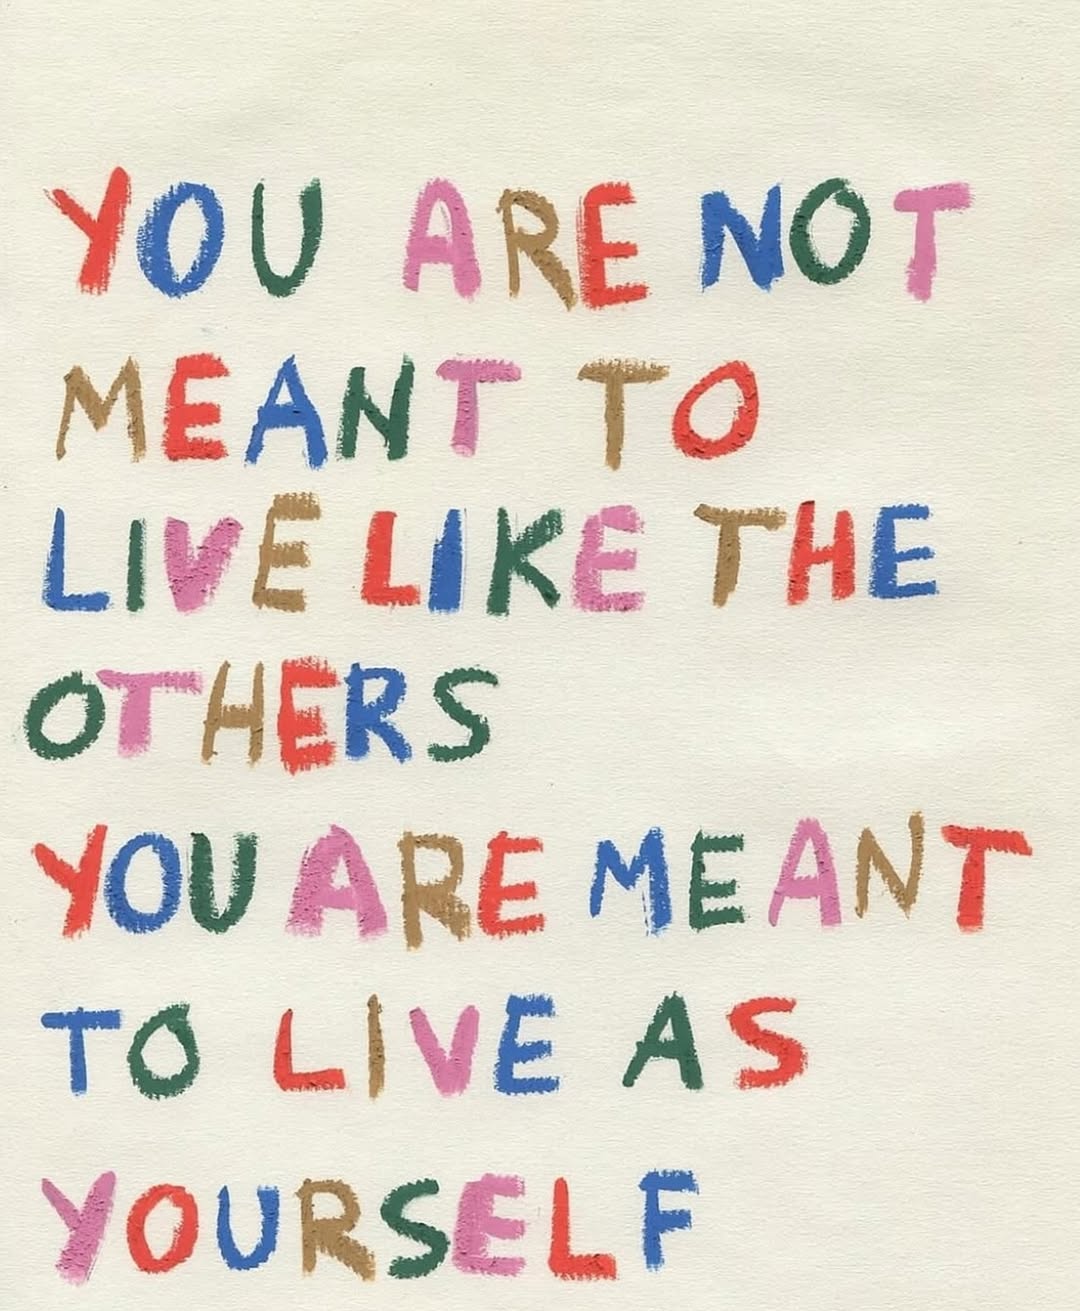 YOU ARE NOT
MEANT TO
LIVE LIKE THE
OTHERS
YOU ARE MEANT
TO LIVE AS
YOURSELF